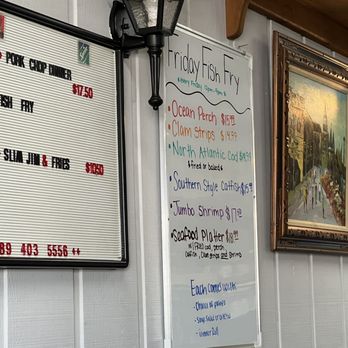 PORK CHOP DINNER
$17.50
FISH FRY
SLIM JIM & FRIES
$10.50
89 403 5556 ++
Friday Fish Fry
Every Friday
• Ocean Perch $15.99
• Clam Strips $14.99
• North Atlantic Cod $14.99
*fried or baked*
• Southern Style Catfish $15.99
• Jumbo Shrimp $17.99
• Seafood Platter
w/ fried cod, perch
catfish, clam strips and shrimp
Each Comes w/
- Choice of potato
- Soup, salad or
- Dinner Roll